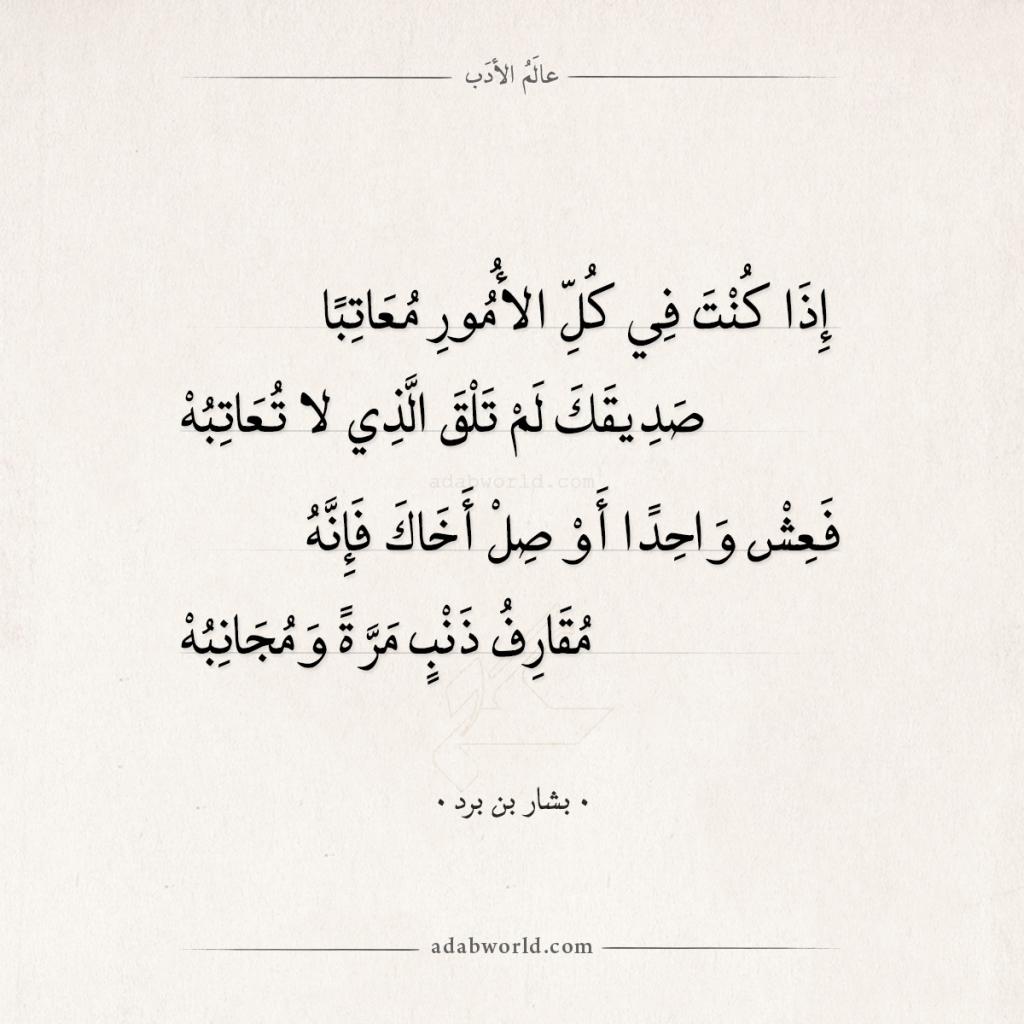 عالَمُ الأدَب
إِذَا كُنْتَ فِي كُلِّ الأُمُورِ مُعَاتِبًا
صَدِيقَكَ لَمْ تَلْقَ الَّذِي لا تُعَاتِبُهْ
adabworld.com
فَعِشْ وَاحِدًا أَوْ صِلْ أَخَاكَ فَإِنَّهُ
مُقَارِفُ ذَنْبٍ مَرَّةً وَمُجَانِبُهْ
• بشار بن برد •
adabworld.com